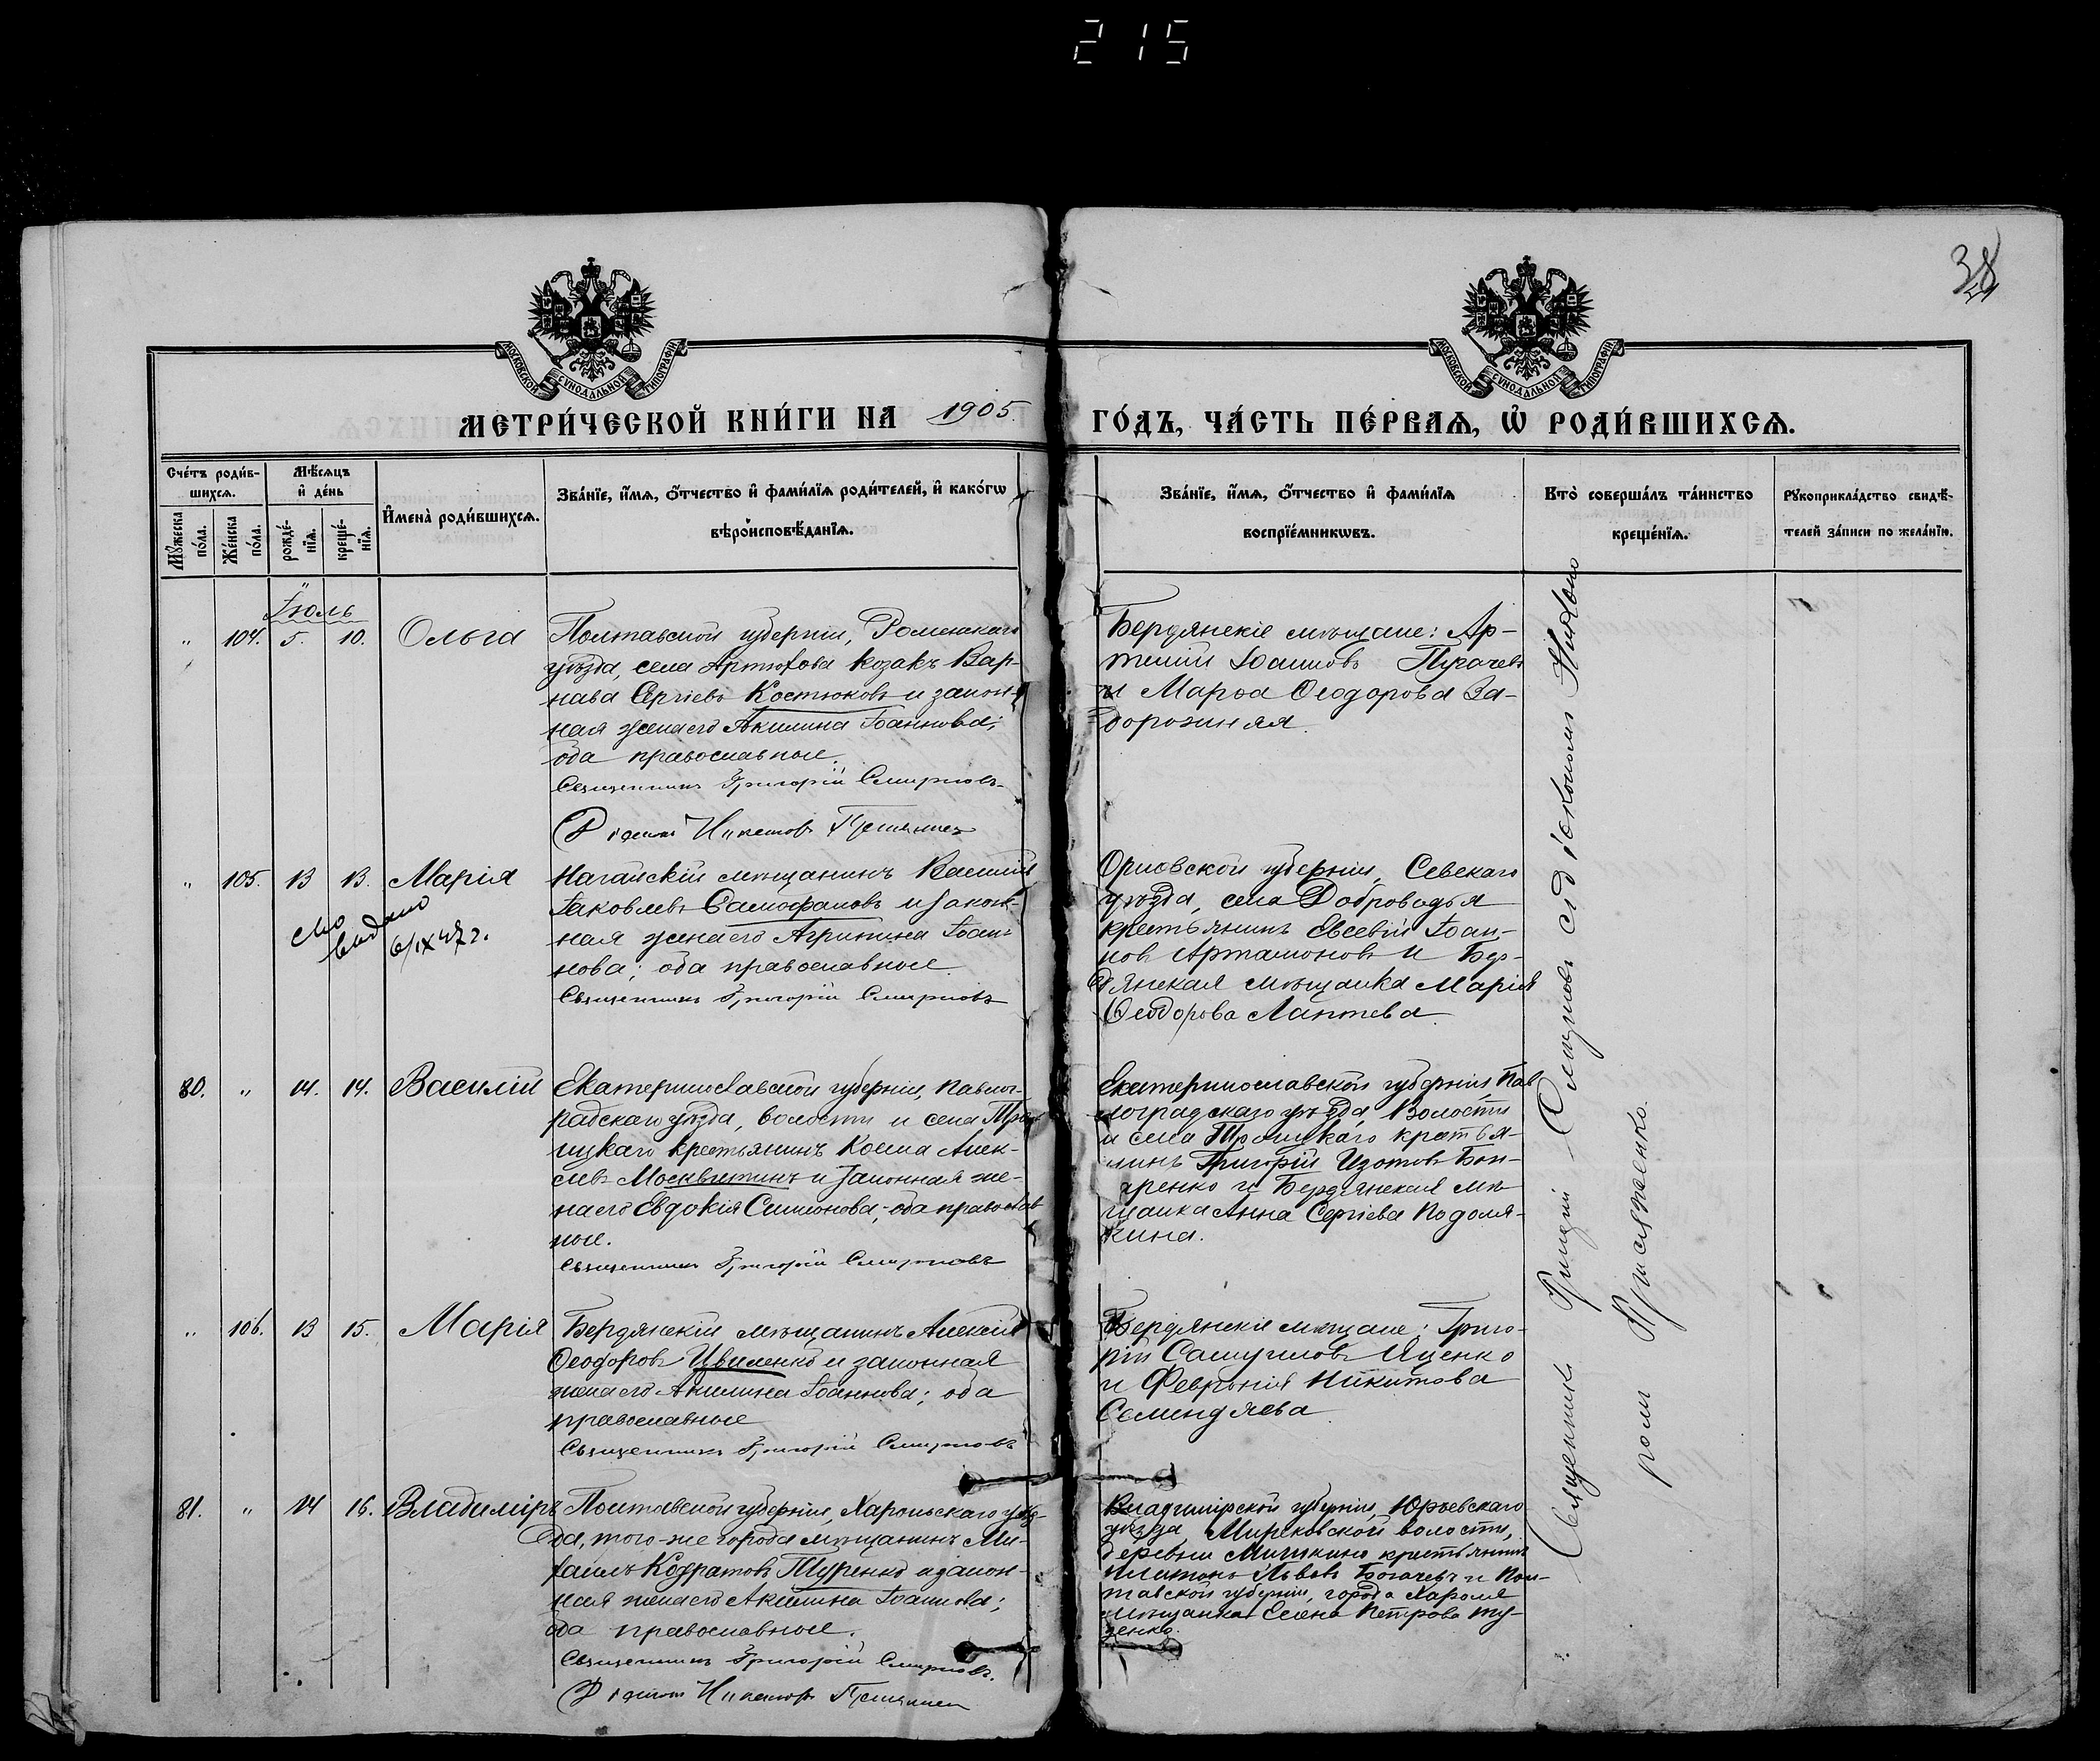 215
38
МОСКОВСКОЙ СѴНОДАЛЬНОЙ ТИПОГРАФІИ
МОСКОВСКОЙ СѴНОДАЛЬНОЙ ТИПОГРАФІИ
МЕТРИ́ЧЕСКОЙ КНИ́ГИ НА 1905 ГО́ДЪ, ЧА́СТЬ ПЕ́РВАѦ, Ѡ҆ РОДИ́ВШИХСѦ.
Сче́тъ роди́в-
шихсѧ.
Мꙋ́жеска
по́ла.
Же́нска
по́ла.
Мѣ́сѧцъ
и҆ де́нь
рожде́-
нїѧ.
креще́-
нїѧ.
И҆мена̀ роди́вшихсѧ.
Зва́нїе, и҆́мѧ, ѻ҆́тчество и҆ фамилїѧ роди́телей, и҆ како́гѡ
вѣроисповѣ́данїѧ.
Зва́нїе, и҆́мѧ, ѻ҆́тчество и҆ фами́лїѧ
воспрїе́мникѡвъ.
Кто̀ соверша́лъ та́инство
креще́нїѧ.
Рꙋкоприкла́дство свидѣ́-
телей за́писи по жела́нїю.
Іюль
„ 104. 5. 10. Ольга
Полтавской губерніи, Роменскаго
уѣзда, села Артюхова козакъ Вар-
нава Сергіевъ Костюковъ и закон-
ная жена его Акилина Іоаннова;
оба православные.
Священникъ Григорій Смирновъ.
Бердянскіе мѣщане: Ар-
темій Іоанновъ Пугачевъ
и Марѳа Ѳеодорова За-
дорожняя.
„ 105. 13 13. Марія
выдано
6/IX 47 г.
Нагайскій мѣщанинъ Василій
Іаковлевъ и закон-
ная жена его Агрипина Іоан-
нова; оба православные.
Священникъ Григорій Смирновъ
Орловской губерніи, Севскаго
уѣзда, села Доброводья
крестьянинъ Евсевій Іоан-
новъ Артамоновъ и Бер-
дянская мѣщанка Марія
Ѳеодорова Лаптева.
80. „ 14. 14. Василій
Екатеринославской губерніи, Павлог-
радскаго уѣзда, волости и села Трои-
ицкаго крестьянинъ Косма Алек-
сіевъ Москвитинъ и законная же-
на его Евдокія Симионова; оба православ-
ные.
Священникъ Григорій Смирновъ
Екатеринославской губерніи, Пав-
лоградскаго уѣзда, Волости
и села Троицкаго крестья-
нинъ Григорій Изотовъ Бон-
даренко и Бердянская мѣ-
щанка Анна Сергіева Подоля-
кина.
„ 106. 13 15. Марія
Бердянскій мѣщанинъ Алексій
Ѳеодоровъ Цвиленко и законная
жена его Акилина Іоаннова; оба
православные
Священникъ Григорій Смирновъ
Бердянскіе мѣщане: Григо-
рій Самуиловъ Иценко
и Февронія Никитова
Семендяева.
81. „ 14 16. Владиміръ
Полтавской губерніи, Хорольскаго уѣз-
да, того-же города мѣщанинъ Ми-
хаилъ Кодратовъ Туренко и закон-
ная жена его Акилина Іоаннова;
оба православные.
Священникъ Григорій Смирновъ.
Владимірской губерніи, Юрьевскаго
уѣзда, волости,
деревни крестьянинъ
Платонъ Львовъ Богачевъ и Пол-
тавской губерніи, города Хорола
мѣщанка Елена Петрова
Священникъ Григорій Смирновъ съ діакономъ
Присяженко.